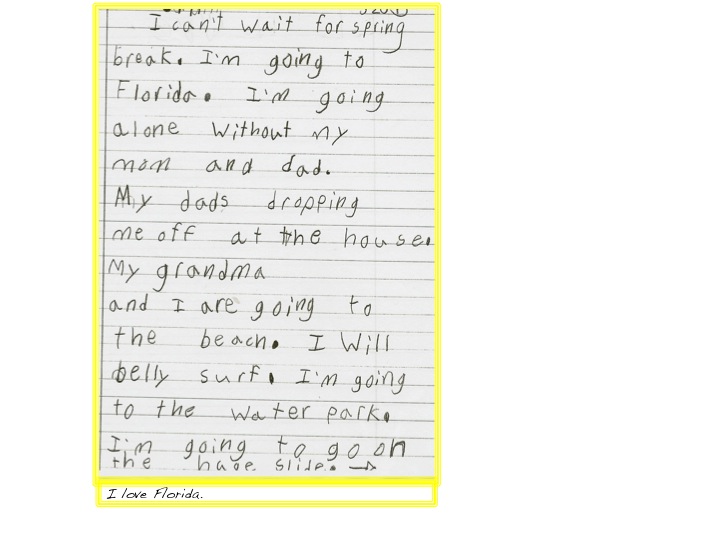 I can't wait for spring
break. I'm going to
Florida. I'm going
alone without my
mom and dad.
My dads dropping
me off at the house.
My grandma
and I are going to
the beach. I will
belly surf. I'm going
to the water park.
I'm going to go on
the huge slide. →
I love Florida.